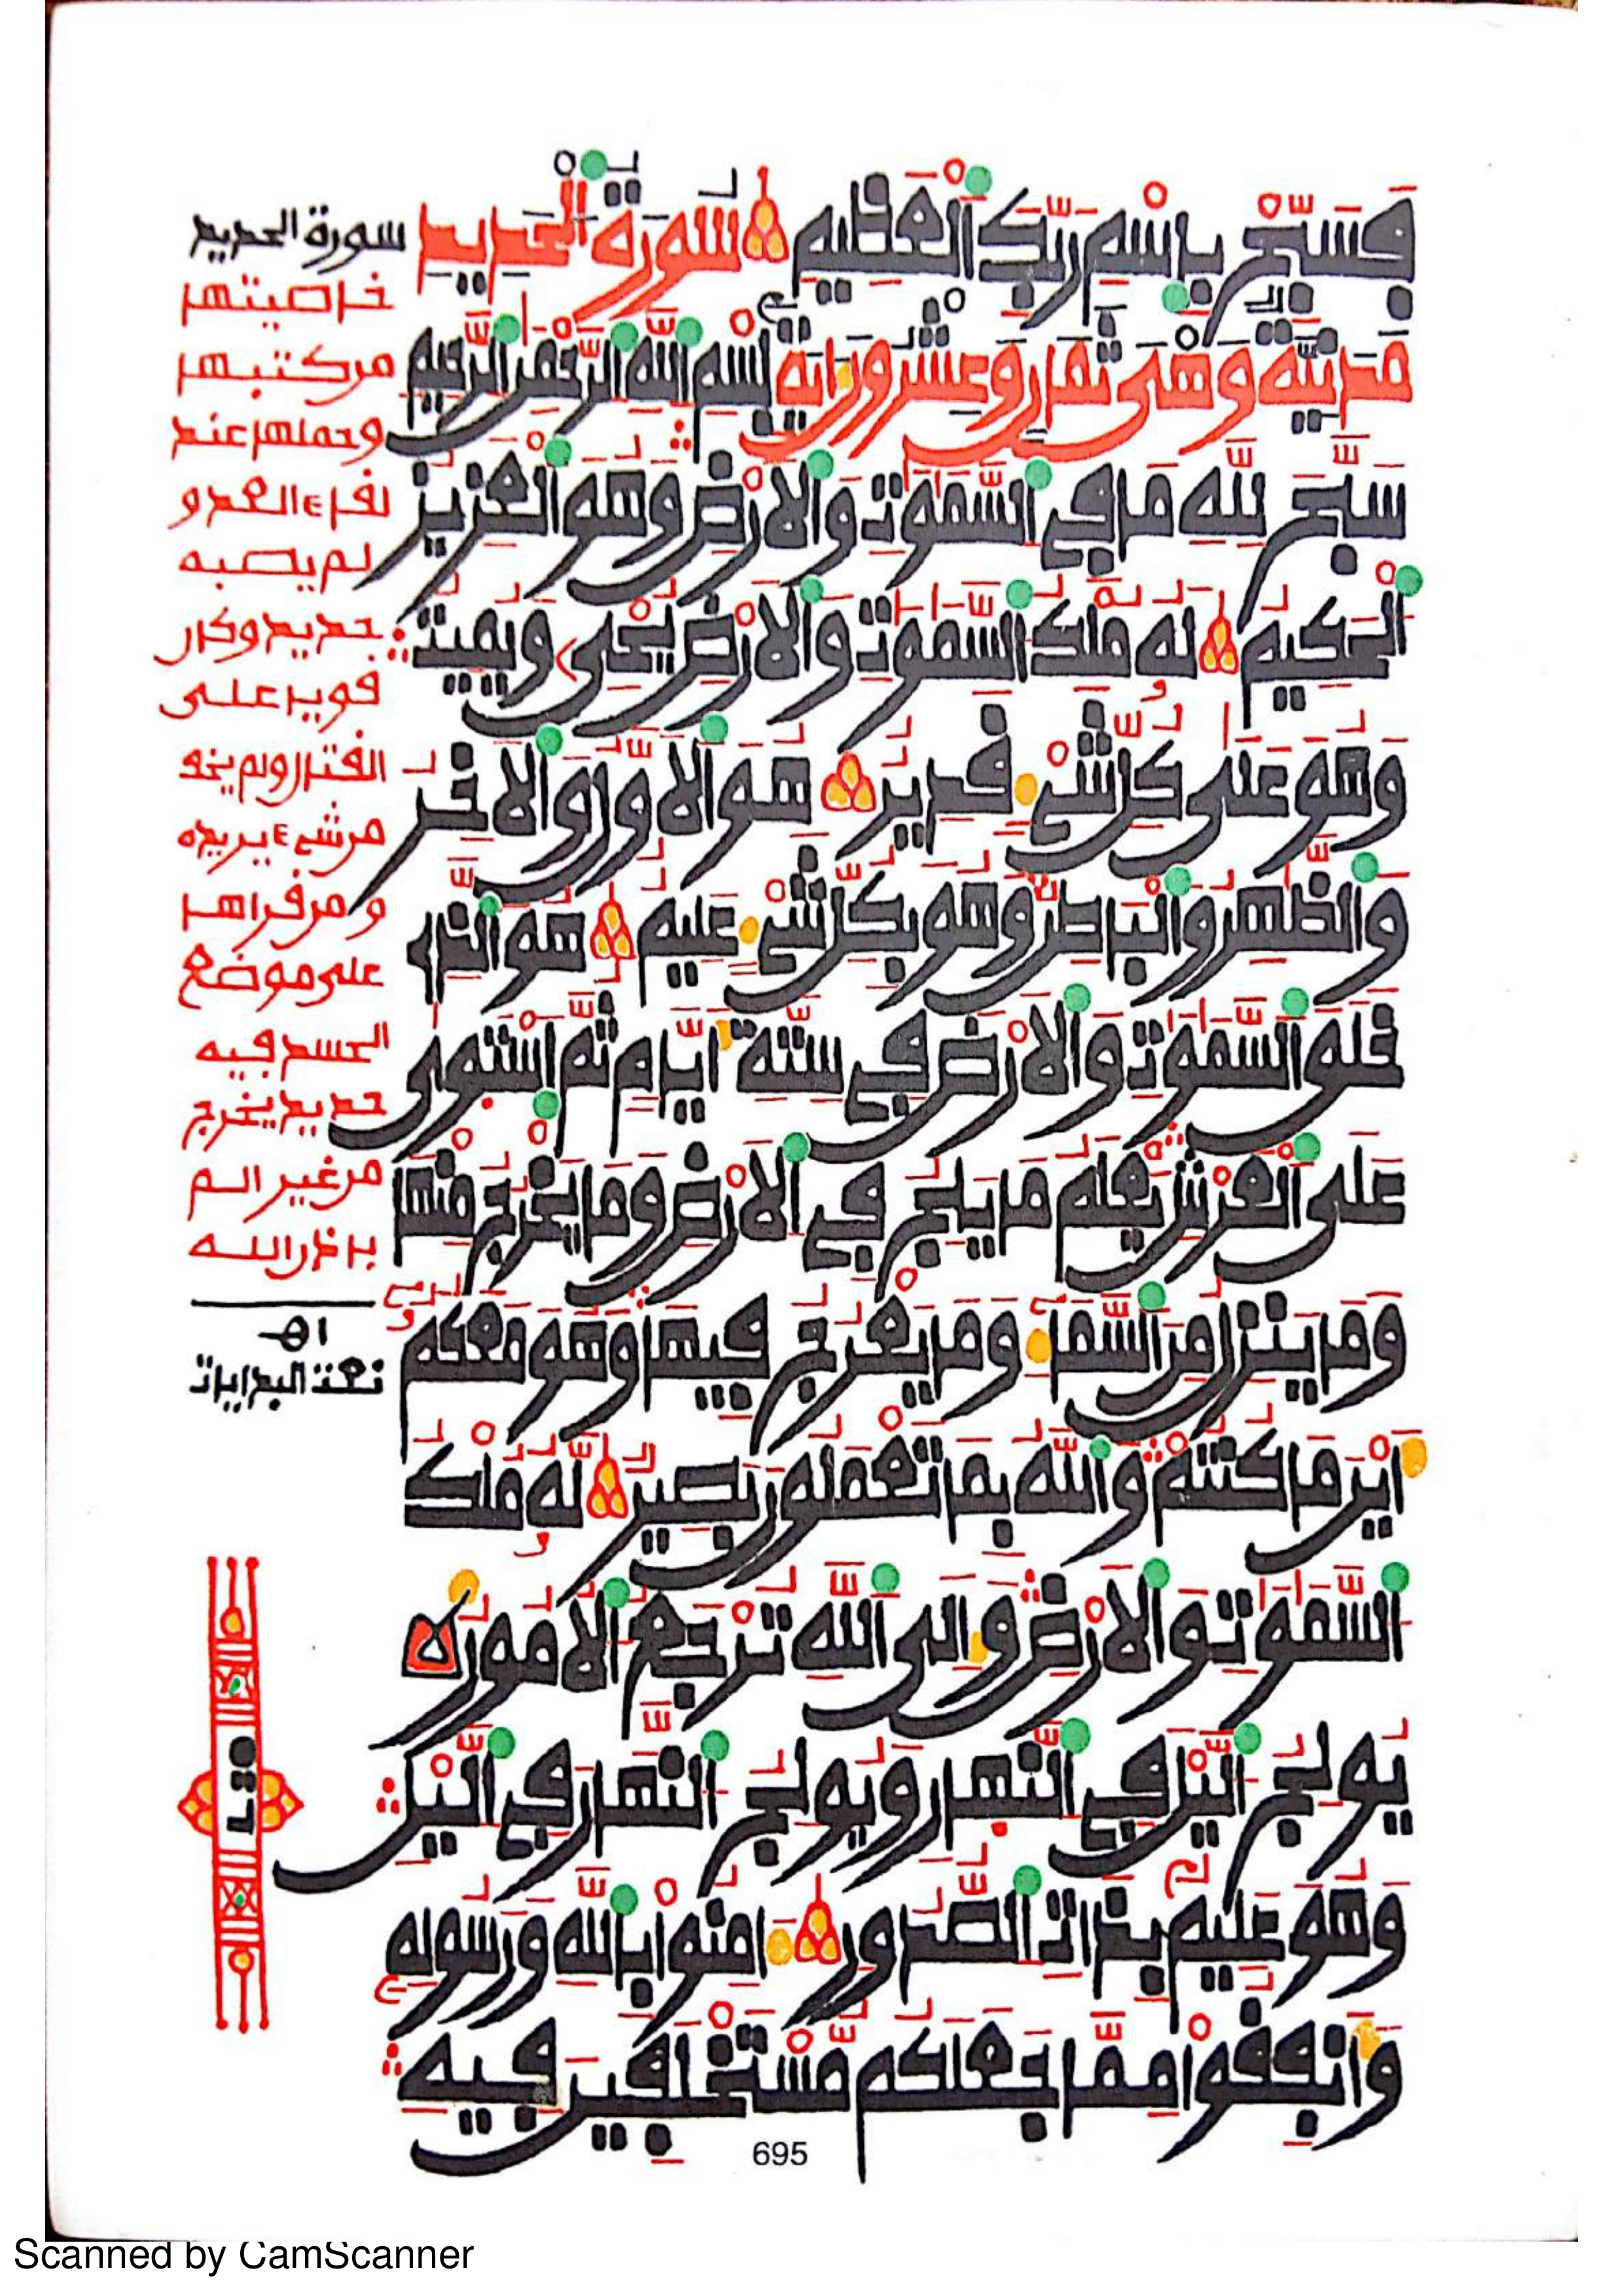 فَسَبِّحْ بِاسْمِ رَبِّكَ ٱلْعَظِيمِ سُورَةُ ٱلْحَدِيدِ
مَدَنِيَّةٌ وَهْىَ ثَمَانٌ وَعِشْرُونَ ءَايَةً بِسْمِ ٱللَّهِ ٱلرَّحْمَٰنِ ٱلرَّحِيمِ
سَبَّحَ لِلَّهِ مَا فِى ٱلسَّمَٰوَٰتِ وَٱلْأَرْضِ وَهُوَ ٱلْعَزِيزُ
ٱلْحَكِيمُ لَهُۥ مُلْكُ ٱلسَّمَٰوَٰتِ وَٱلْأَرْضِ يُحْىِۦ وَيُمِيتُ
وَهُوَ عَلَىٰ كُلِّ شَىْءٍ قَدِيرٌ هُوَ ٱلْأَوَّلُ وَٱلْأَخِرُ
وَٱلظَّٰهِرُ وَٱلْبَاطِنُ وَهُوَ بِكُلِّ شَىْءٍ عَلِيمٌ هُوَ ٱلَّذِى
خَلَقَ ٱلسَّمَٰوَٰتِ وَٱلْأَرْضَ فِى سِتَّةِ أَيَّامٍ ثُمَّ ٱسْتَوَىٰ
عَلَى ٱلْعَرْشِ يَعْلَمُ مَا يَلِجُ فِى ٱلْأَرْضِ وَمَا يَخْرُجُ مِنْهَا
وَمَا يَنزِلُ مِنَ ٱلسَّمَاءِ وَمَا يَعْرُجُ فِيهَا وَهُوَ مَعَكُمُ
أَيْنَ مَا كُنتُمْ وَٱللَّهُ بِمَا تَعْمَلُونَ بَصِيرٌ لَهُۥ مُلْكُ
ٱلسَّمَٰوَٰتِ وَٱلْأَرْضِ وَإِلَى ٱللَّهِ تُرْجَعُ ٱلْأُمُورُ
يُولِجُ ٱلَّيْلَ فِى ٱلنَّهَارِ وَيُولِجُ ٱلنَّهَارَ فِى ٱلَّيْلِ
وَهُوَ عَلِيمٌ بِذَاتِ ٱلصُّدُورِ ءَامِنُوا بِٱللَّهِ وَرَسُولِهِ
وَأَنفِقُوا مِمَّا جَعَلَكُم مُّسْتَخْلَفِينَ فِيهِ
695
سورة الحديد
خاصيتها
من كتبها
وحملها عند
لقاء العدو
لم يصبه
حديد وكان
قويا على
القتال ولم يخف
من شيء يريده
ومن قراها
على موضع
الجسد فيه
حديد يخرج
من غير الم
باذن الله
اه
نعت البدايات
Scanned by CamScanner